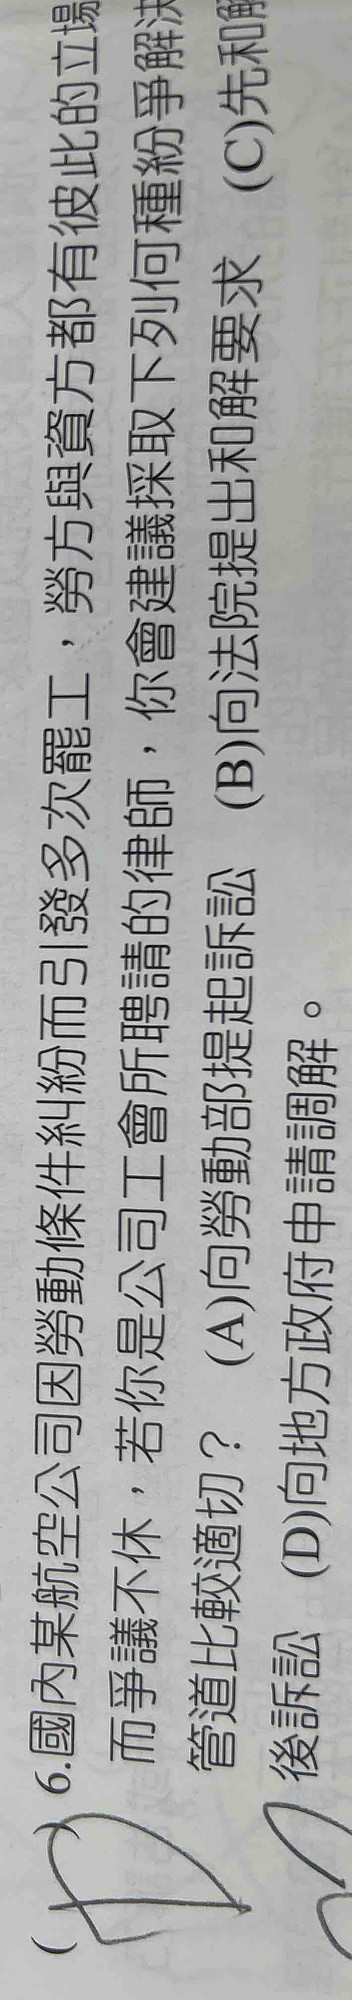 (D) 6.國內某航空公司因勞動條件糾紛而引發多次罷工，勞方與資方都有彼此的立場
而爭議不休，若你是公司工會所聘請的律師，你會建議採取下列何種紛爭解決
管道比較適切？ (A)向勞動部提起訴訟 (B)向法院提出和解要求 (C)先和解
後訴訟 (D)向地方政府申請調解。